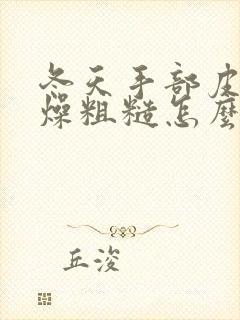 冬天手部皮
燥粗糙怎麼
丘浚